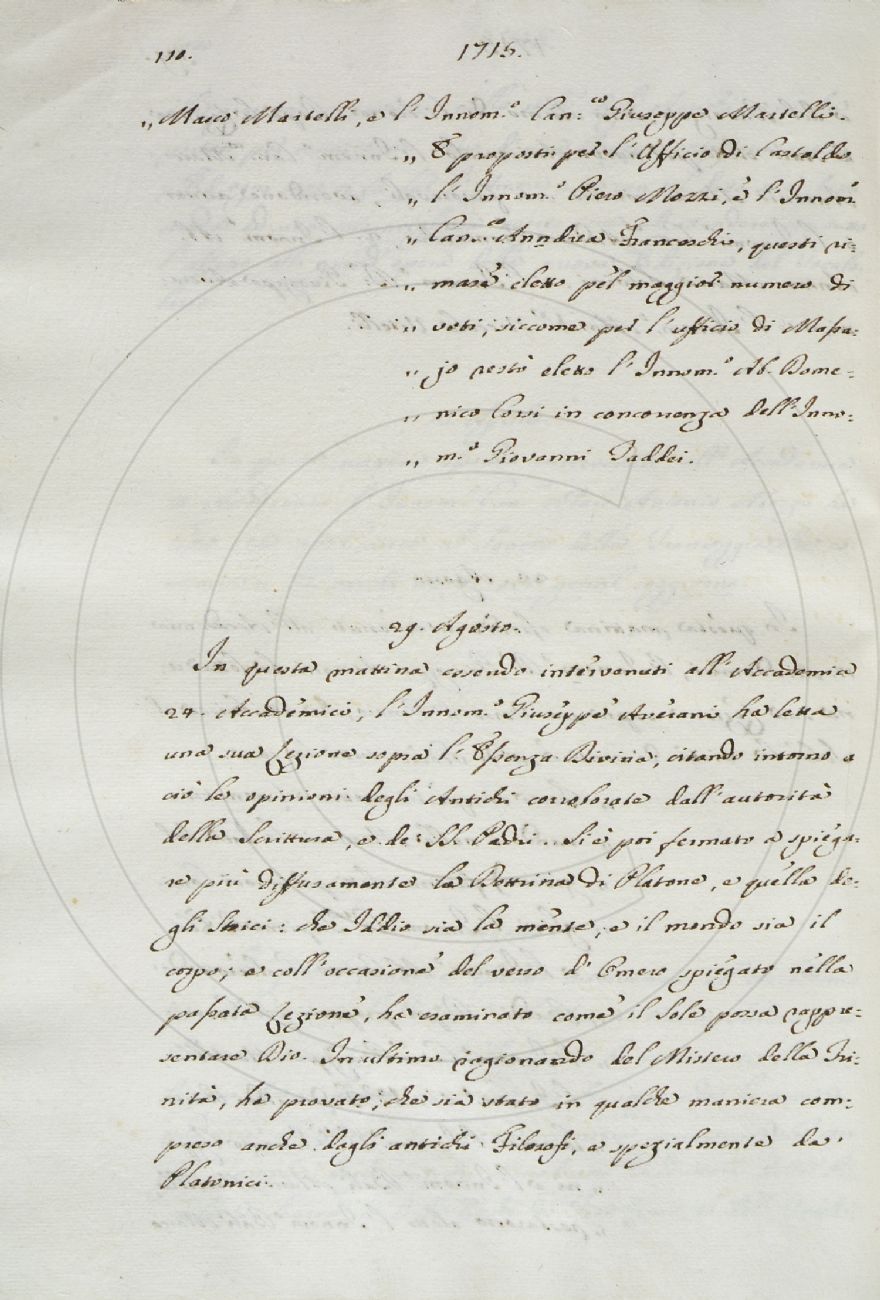 110. 1715.
„ Marco Martelli, e l'Innom.º Can.co Giuseppe Martelli.
„ E proposti per l'Ufficio di Castaldo
„ l'Innom.º Piero Mozzi, e l'Innom.º
„ Can.co Andrea Franceschi, questi ri=
„ mase eletto pel maggior numero di
„ voti, siccome per l'ufficio di Massa=
„ jo restò eletto l'Innom.º Ab. Dome=
„ nico Corsi in concorrenza dell'Inno=
„ m.º Giovanni Taddei.
29. Agosto.
In questa mattina essendo intervenuti all'Accademia
24. Accademici, l'Innom.º Giuseppe Averani ha letta
una sua Lezione sopra l'Essenza Divina, citando intorno a
ciò le opinioni degli Antichi corrolorate dall'autorità
della Scrittura, e de' SS. Padri. Si è poi fermato a spiega=
re più diffusamente la Dottrina di Platone, e quella de=
gli Stoici: che Iddio sia la mente, e il mondo sia il
corpo; e coll'occasione del verso d'Omero spiegato nella
passata Lezione, ha esaminato come il Sole possa rappre=
sentare Dio. In ultimo ragionando del Mistero della Tri=
nità, ha provato, che sia stato in qualche maniera com=
preso anche dagli antichi Filosofi, e spezialmente da'
Platonici.